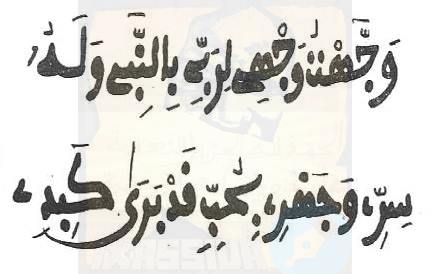 وَجَّهْتُ وَجْهِي لِرَبِّي بِالنَّبِي وَلَهُ
سِرِّي وَجَهْرِي بِحُبٍّ قَدْ بَرَى كَبِدِي